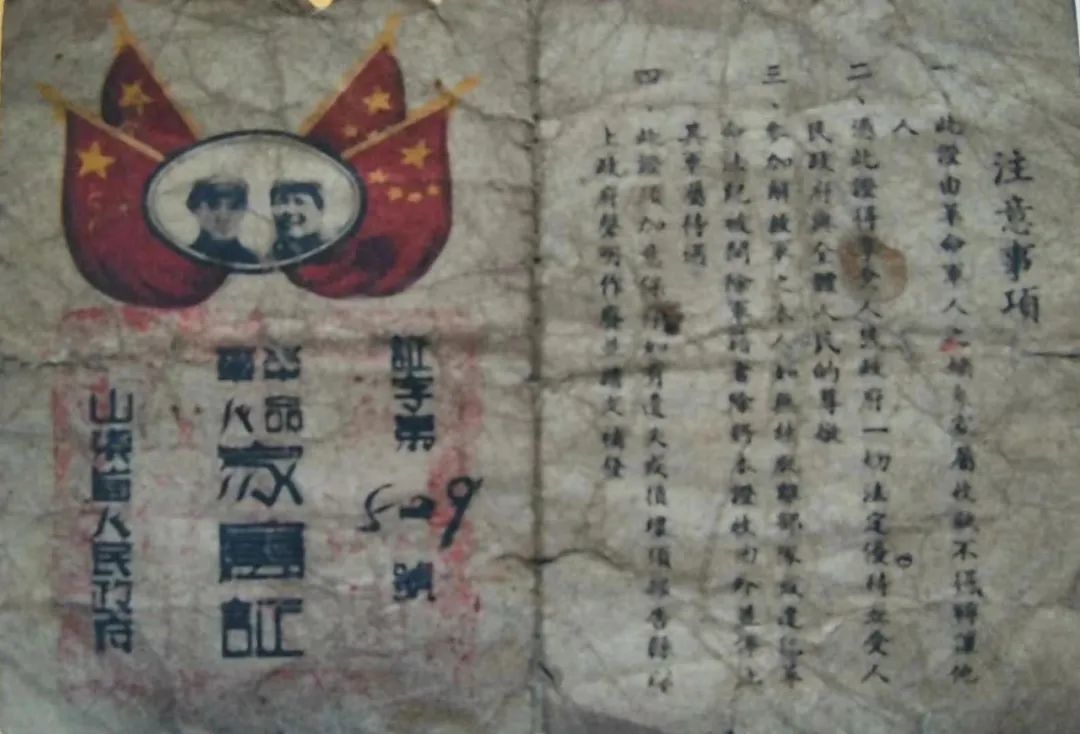 注意事項
一、此證由革命軍人之家屬收執不得轉讓他
人
二、憑此證得享受人民政府一切法定優待並受人
民政府與全體人民的尊敬
三、參加解放軍之本人如無故脫離部隊或違犯革
命法紀被開除軍籍者除將本證收回外並停止
其軍屬待遇
四、此證須加意保存如有遺失或損壞須報告縣以
上政府聲明作廢並請求補發
証字第509號
革命
軍人
家屬証
山東省人民政府